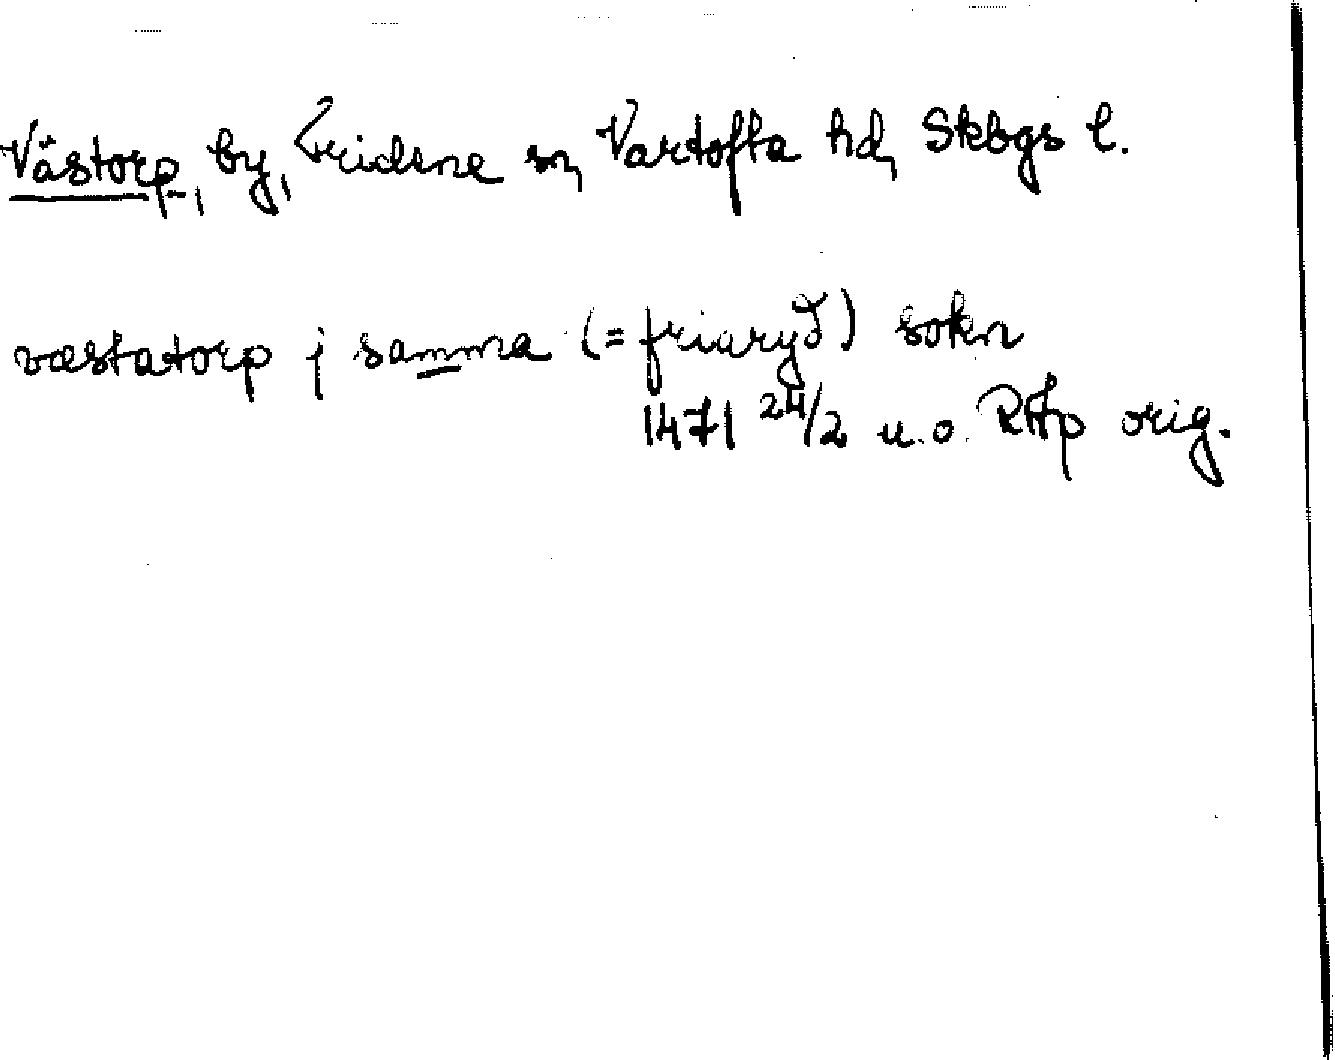 Västorp, by, Fridene sn, Vartofta hd, Skbgs l.
væstatorp j samma (= friaryd) sokn
1471 24/2 u.o. RAp orig.